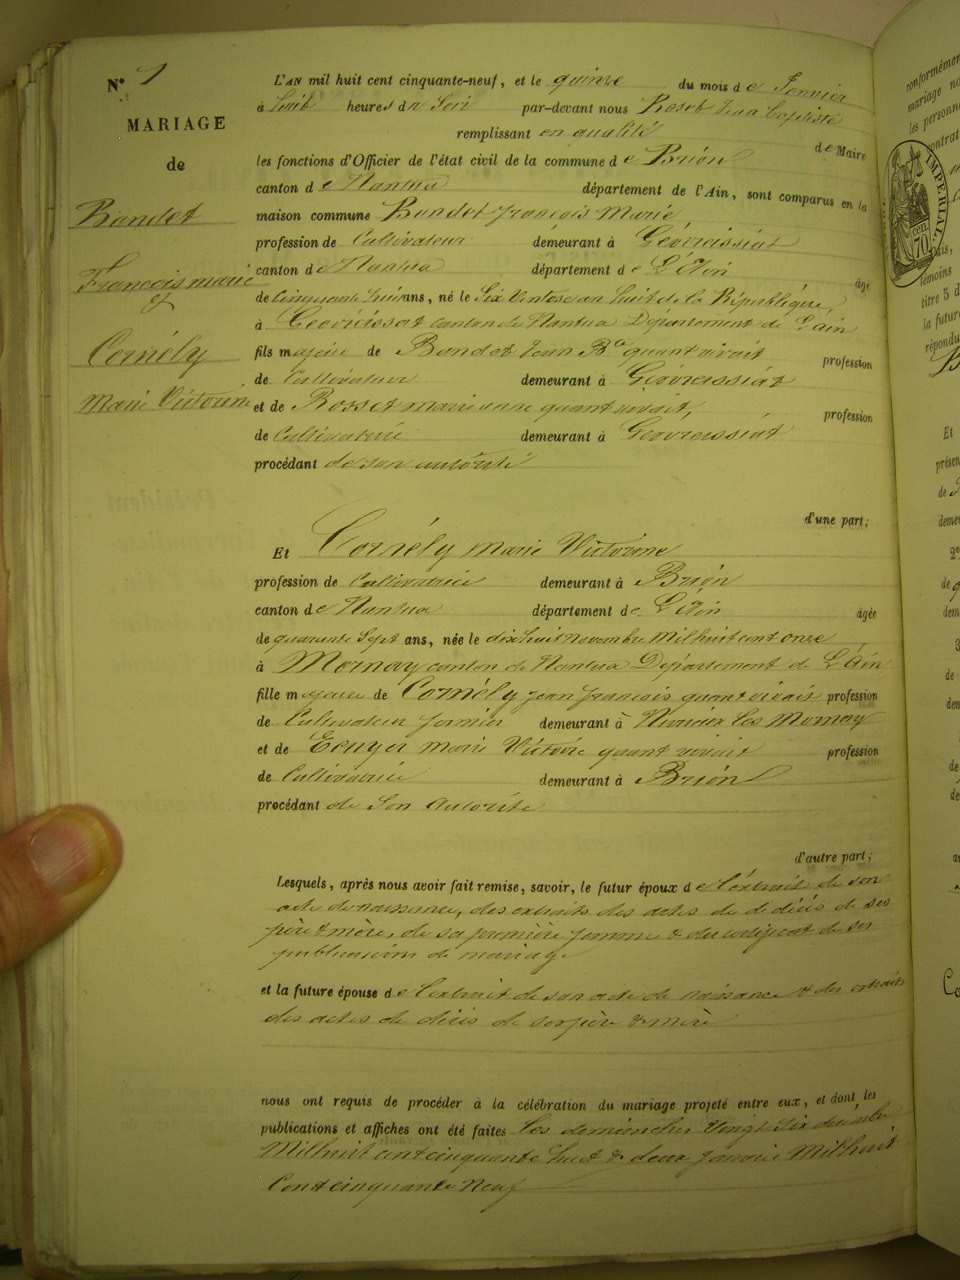 N° 1
MARIAGE
de
Bandet
François marie
et
Cornély
Marie Victorine
L'AN mil huit cent cinquante-neuf, et le quinze du mois de Janvier
à huit heures du Soir par-devant nous Roset Jean Baptiste
remplissant en qualité de Maire
les fonctions d'Officier de l'état civil de la commune de Brion
canton de Nantua département de l'Ain, sont comparus en la
maison commune Bandet françois Marie
profession de Cultivateur demeurant à Géovreissiat
canton de Nantua département de L'Ain âgé
de Cinquante huit ans, né le Six Ventose an huit de la République
à Geovreissiat canton de Nantua Département de L'ain
fils majeur de Bandet Jean Bte quant vivait profession
de Cultivateur demeurant à Géovreissiat
et de Rosset marie anne quant vivait, profession
de Cultivatrice demeurant à Géovreissiat
procédant de son autorité
d'une part;
Et Cornély marie Victorine
profession de Cultivatrice demeurant à Brion
canton de Nantua département de L'Ain âgée
de quarante Sept ans, née le dix huit Novembre Mil huit cent onze
à Mornay canton de Nantua Département de L'Ain
fille majeure de Cornély jean françois quant vivais profession
de Cultivateur fermier demeurant à les Mornay
et de Ecuyer marie Victoire quant vivait profession
de Cultivatrice demeurant à Brion
procédant de Son Autorité
d'autre part;
Lesquels, après nous avoir fait remise, savoir, le futur époux de l'éxtrait de son
acte de naissance, des extraits des actes de décès de ses
père & mère, de sa première femme & du certificat de ses
publications de mariage
et la future épouse de l'extrait de son acte de naisance & des extraits
des actes de décès de ses père & mère
nous ont requis de procéder à la célébration du mariage projeté entre eux, et dont les
publications et affiches ont été faites les dimanches Vingt Six décembre
Mil huit cent cinquante huit & deux Janvier Mil huit
Cent cinquante Neuf
conformément
mariage
les personnes
contrat
IMPERIAL
70 cen.
témoins
titre 5 d
la future
répondu
Et
présen
de
demeu
2e
de
dem
3
de
den
de
de